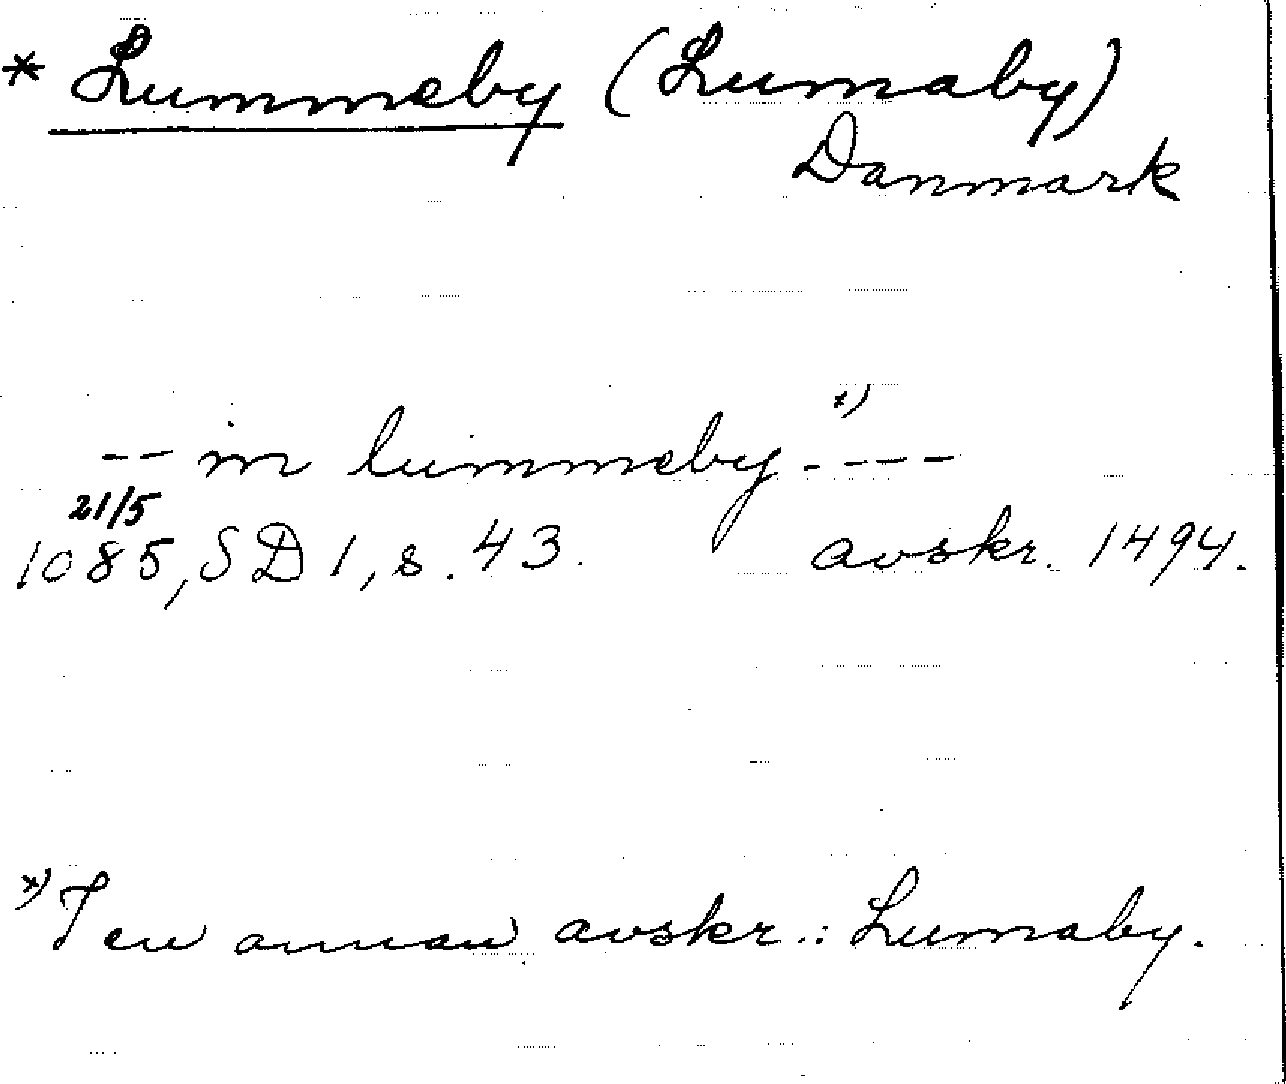 * Lummeby (Lumaby)
Danmark
-- in lummeby. x) ---
21/5
1085, SD 1, s. 43. avskr. 1494.
x) I en annan avskr.: Lumaby.